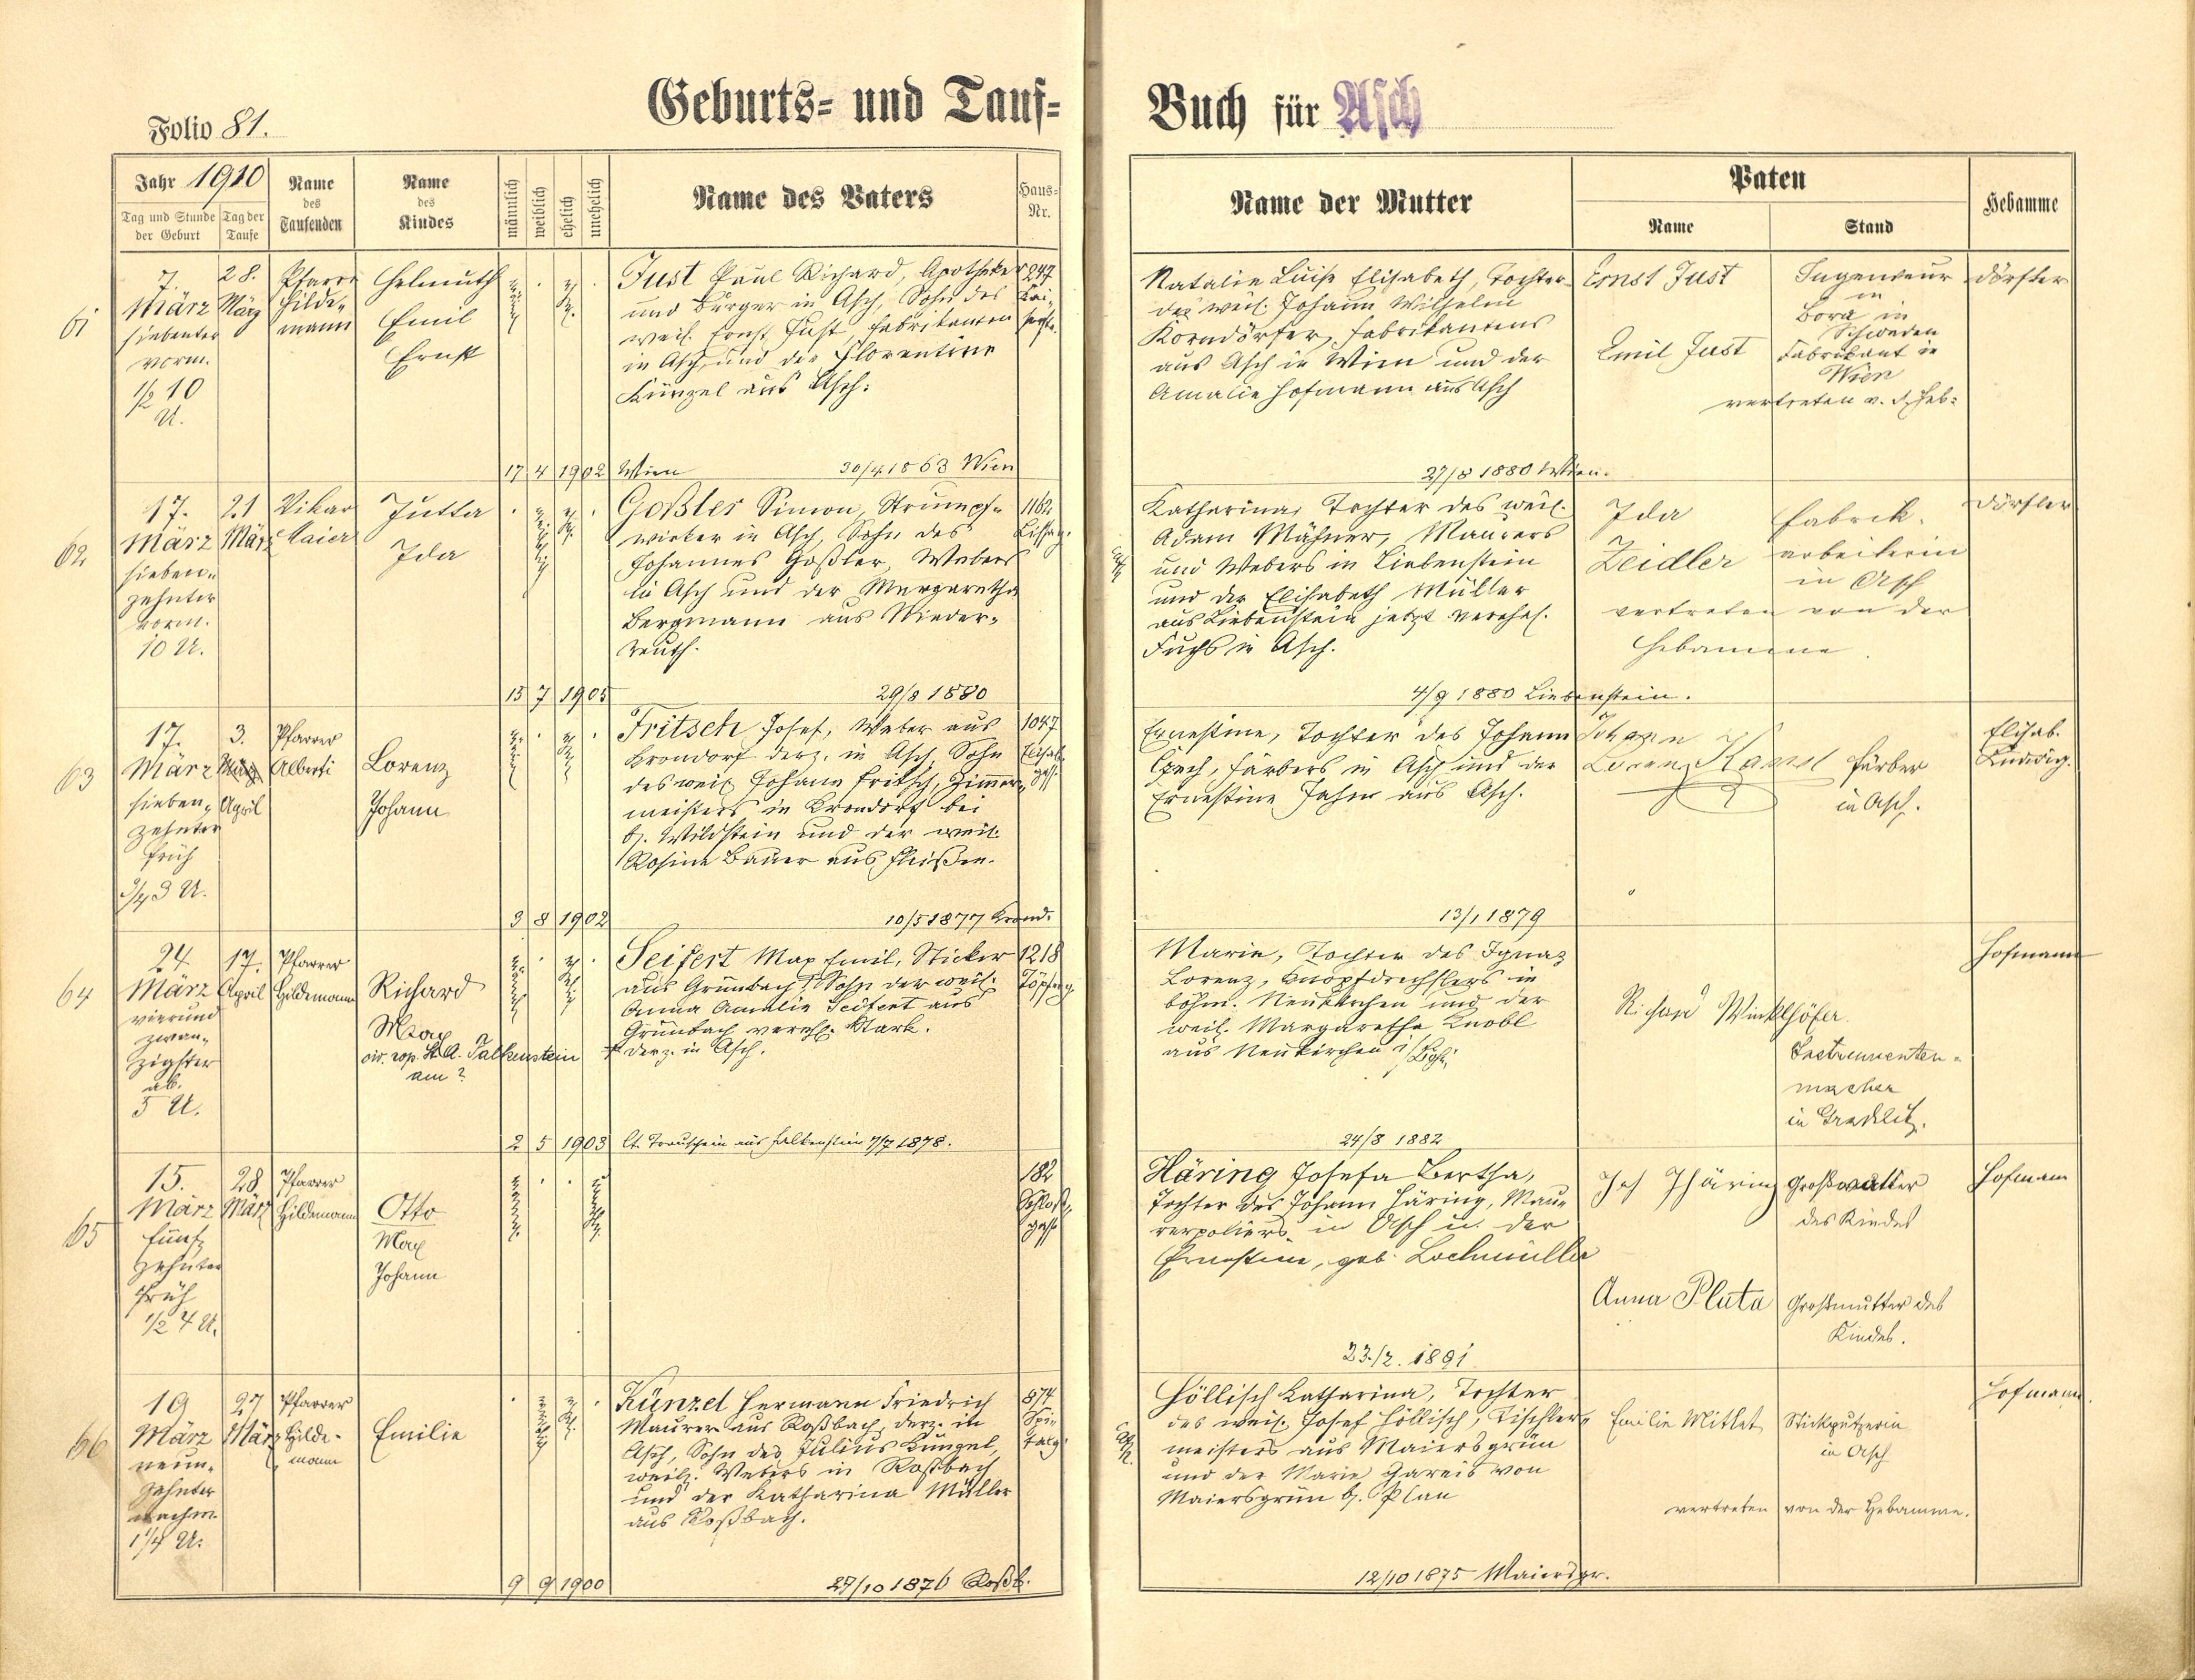 Folio 81.
Geburts- und Tauf-
Buch für Asch
Jahr 1910
Tag und Stunde der Geburt
Tag der Taufe
Name des Taufenden
Name des Kindes
männlich
weiblich
ehelich
unehelich
Name des Vaters
Haus-Nr.
Name der Mutter
Paten
Name
Stand
Hebamme
61
7.
März
siebenter
vorm.
1/2 10
U.
28.
März
Pfarrer
Hilde-
mann
Helmuth
Emil
Ernst
Just Paul Richard, Apotheker
und Bürger in Asch, Sohn des
weil. Ernst Just, Fabrikanten
in Asch, und der Florentine
Künzel aus Asch.
247
17 4 1902 Wien 30/4 1863 Wien
Natalie Luise Elisabeth, Tochter
des weil. Johann Wilhelm
Korndörfer, Fabrikantens
aus Asch in Wien und der
Amalie Hofmann aus Asch
27/8 1880 Wien.
Ernst Just
Ingenieur
in
Borå in
Schweden
Emil Just
Fabrikant in
Wien
vertreten v. d. Heb:
Dörfler
62
17.
März
sieben-
zehnter
vorm.
10 U.
21
März
Vikar
Maier
Jutta
Ida
Goßler Simon, Strumpf-
wirker in Asch, Sohn des
Johannes Goßler, Webers
in Asch und der Margaretha
Bergmann aus Nieder-
reuth.
1162
15 7 1905 29/8 1880
Katharina, Tochter des weil.
Adam Mähner, Maurers
und Webers in Liebenstein
und der Elisabeth Müller
aus Liebenstein jetzt verehel.
Fuchs in Asch.
4/9 1880 Liebenstein.
Ida
Zeidler
Fabrik-
arbeiterin
in Asch
vertreten von der
Hebamme.
Dörfler
63
17.
März
sieben-
zehnter
früh
3/4 3 U.
3.
März
April
Pfarrer
Alberti
Lorenz
Johann
Fritsch Josef, Weber aus
Krondorf derz. in Asch, Sohn
des weil. Johann Fritsch, Zimmer-
meisters in Krondorf bei
b. Wildstein und der weil.
Rosine Bauer aus Fleißen.
1047
3 8 1902 10/5 1877 Krond.
Ernestine, Tochter des Johann
Färbers in Asch und der
Ernestine Jahn aus Asch.
13/1 1879
Johann
Lorenz
Färber
in Asch.
Elisab.
Ludwig.
64
24.
März
vierund
zwan-
zigster
ab.
5 U.
17.
April
Pfarrer
Hildemann
Richard
Max
Falkenstein
am ?
Seifert Max Emil, Sticker
aus Grünbach, Sohn der weil.
Anna Amalie Seifert aus
Grünbach verehl. Stark.
+ derz. in Asch.
1218
Töpferg
2 5 1903 lt. Trauschein aus Falkenstein 7/7 1878.
Marie, Tochter des Ignaz
Lorenz, Knopfdrechslers in
böhm. Neukirchen und der
weil. Margaretha Knobl
aus Neukirchen
24/8 1882
Richard Winklhöfer.
Instrumenten-
macher
in Graslitz.
Hofmann
65
15.
März
fünf-
zehnter
früh
1/2 4 U.
28
März
Pfarrer
Hildemann
Otto
Max
Johann
182
Schloß-
gasse
Häring Josefa Bertha,
Tochter des Johann Häring, Mau-
rerpoliers in Asch u. der
Ernestine, geb. Lochmüller
23/2. 1891
Joh Häring
Großvatter
des Kindes
Anna Pluta
Großmutter des
Kindes.
Hofmann
66
19
März
neun-
zehnter
nachm.
1 1/4 U.
27
März
Pfarrer
Hilde-
mann
Emilie
Künzel Hermann Friedrich
Maurer aus Roßbach, derz. in
Asch, Sohn des Julius Künzel,
weil. Webers in Roßbach
und der Katharina Müller
aus Roßbach.
874
Spi-
talg.
9 9 1900 27/10 1876 Roßb.
Höllisch Katharina, Tochter
des weil. Josef Höllisch, Tischler-
meisters aus Maiersgrün
und der Marie Gareis von
Maiersgrün b. Plan
12/10 1875 Maiersgr.
Emilie
Stickputzerin
in Asch
vertreten von der Hebamme.
Hofmann.